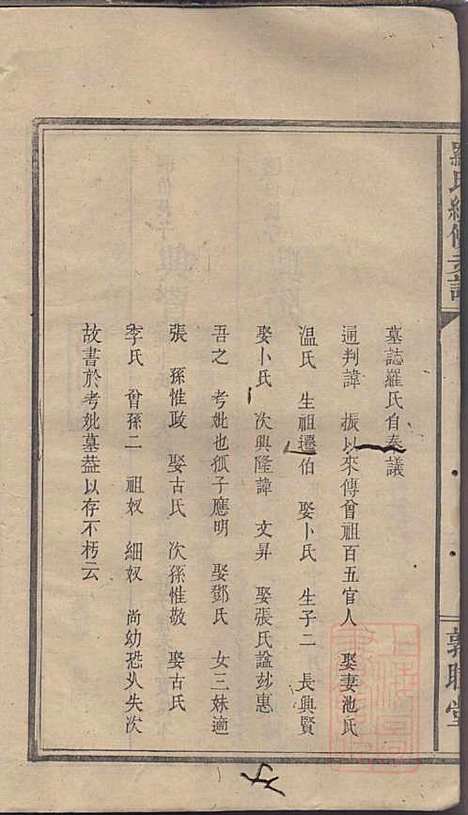 羅氏續修支譜
敦睦堂
墓誌羅氏自奏議
通判諱 振以來傳曾祖百五官人 娶妻池氏
溫氏 生祖遷伯 娶卜氏 生子二 長興賢
娶卜氏 次興隆諱 文昇 娶張氏諡妙惠
吾之 考妣也孤子應明 娶鄧氏 女三妹適
張 孫惟政 娶古氏 次孫惟敬 娶古氏
李氏 曾孫二 祖奴 細奴 尚幼恐乆失次
故書於考妣墓葢以存不朽云